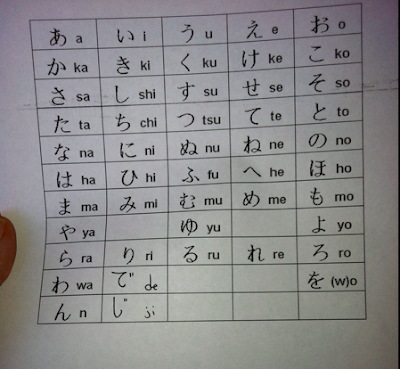 あ a い i う u え e お o
か ka き ki く ku け ke こ ko
さ sa し shi す su せ se そ so
た ta ち chi つ tsu て te と to
な na に ni ぬ nu ね ne の no
は ha ひ hi ふ fu へ he ほ ho
ま ma み mi む mu め me も mo
や ya ゆ yu よ yo
ら ra り ri る ru れ re ろ ro
わ wa で de を (w)o
ん n じ ji